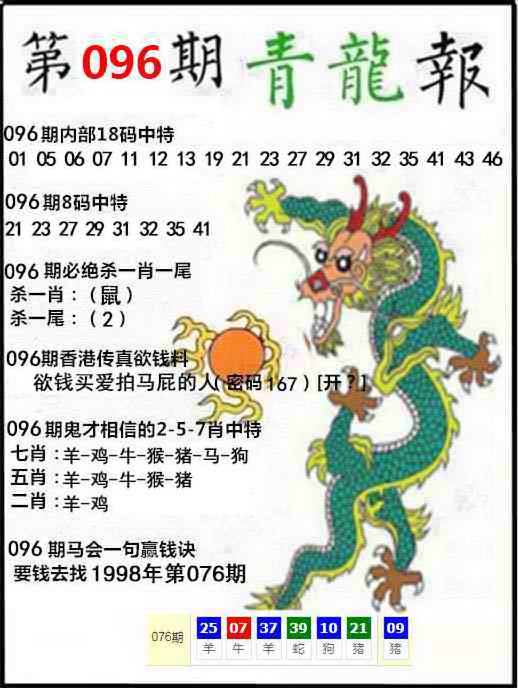 第096期青龍報
096期内部18码中特
01 05 06 07 11 12 13 19 21 23 27 29 31 32 35 41 43 46
096期8码中特
21 23 27 29 31 32 35 41
096 期必绝杀一肖一尾
杀一肖：（鼠）
杀一尾：（2）
096期香港传真欲钱料
欲钱买爱拍马屁的人（密码167）[开？]
096期鬼才相信的2-5-7肖中特
七肖：羊-鸡-牛-猴-猪-马-狗
五肖：羊-鸡-牛-猴-猪
二肖：羊-鸡
096 期马会一句赢钱诀
要钱去找1998年第076期
076期 25 07 37 39 10 21 09
羊 牛 羊 蛇 狗 猪 猪